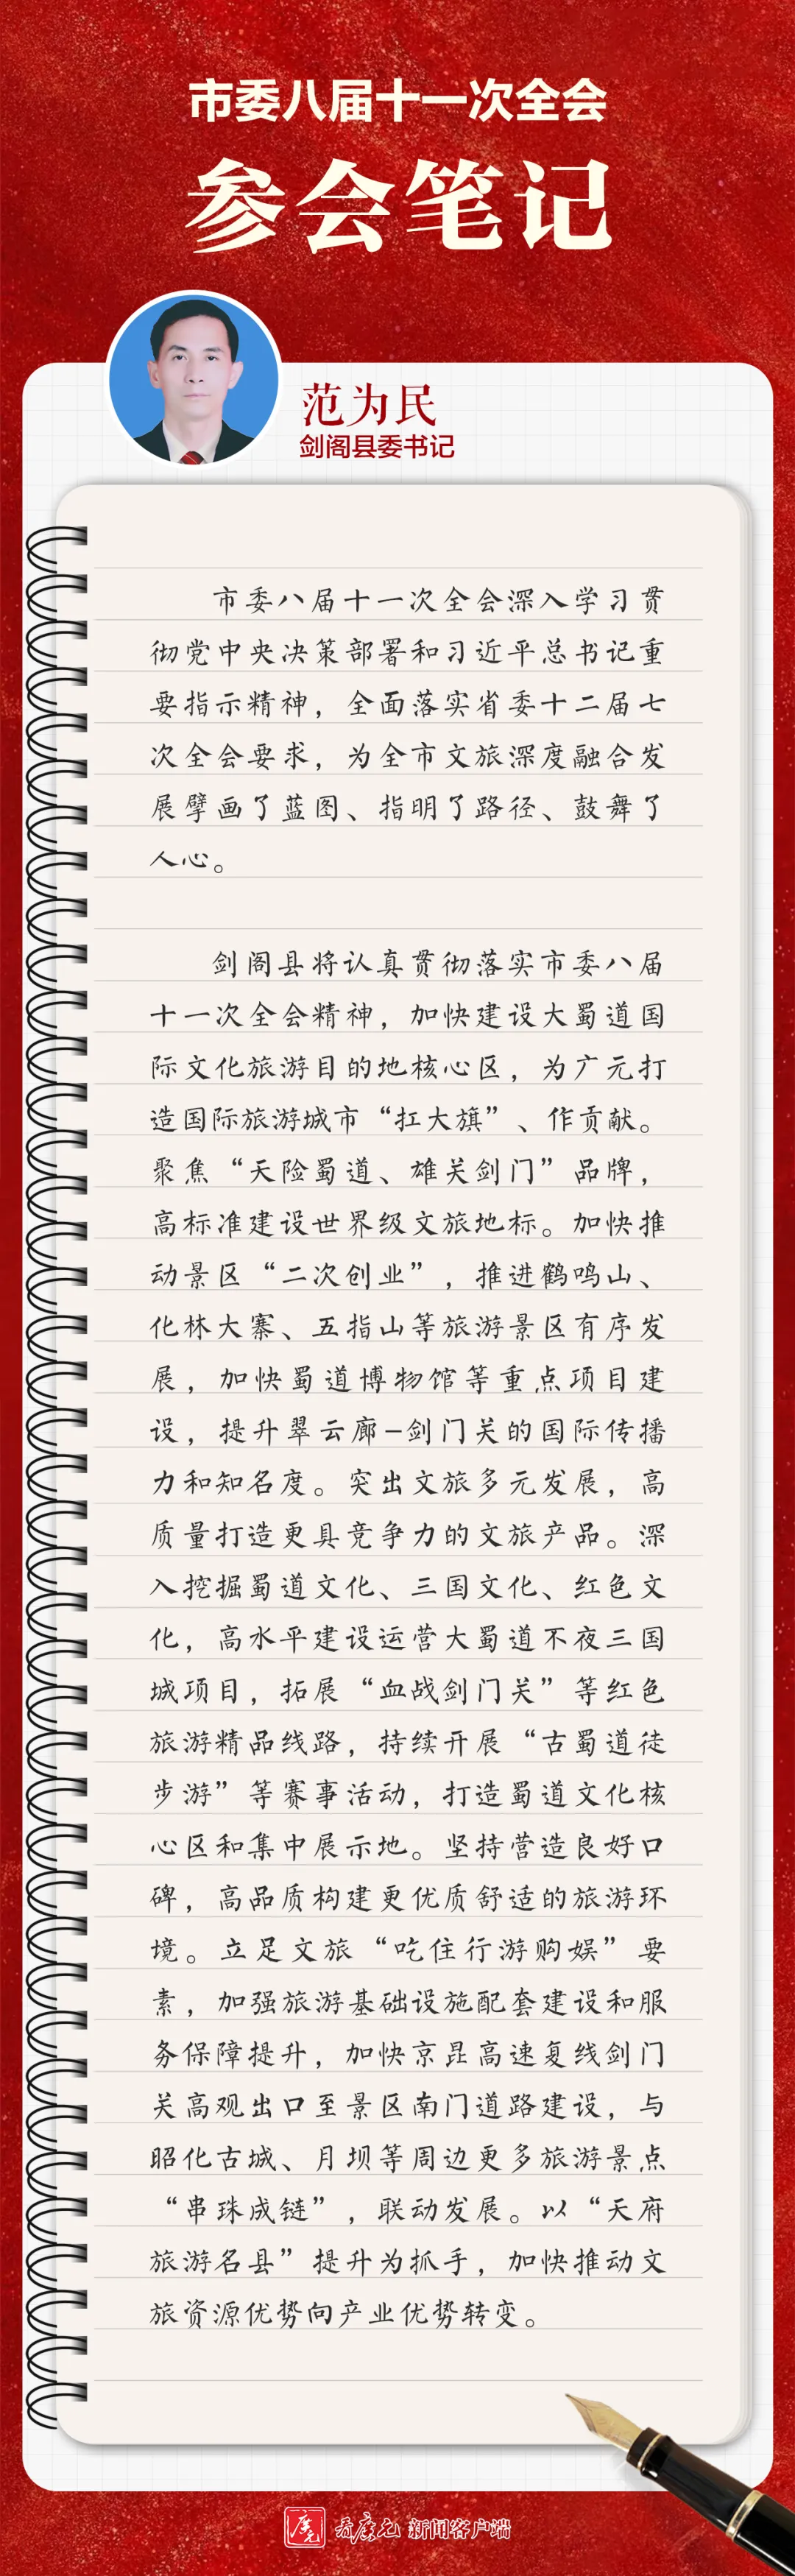 市委八届十一次全会
参会笔记
范为民
剑阁县委书记
市委八届十一次全会深入学习贯
彻党中央决策部署和习近平总书记重
要指示精神，全面落实省委十二届七
次全会要求，为全市文旅深度融合发
展擘画了蓝图、指明了路径、鼓舞了
人心。
剑阁县将认真贯彻落实市委八届
十一次全会精神，加快建设大蜀道国
际文化旅游目的地核心区，为广元打
造国际旅游城市“扛大旗”、作贡献。
聚焦“天险蜀道、雄关剑门”品牌，
高标准建设世界级文旅地标。加快推
动景区“二次创业”，推进鹤鸣山、
化林大寨、五指山等旅游景区有序发
展，加快蜀道博物馆等重点项目建
设，提升翠云廊-剑门关的国际传播
力和知名度。突出文旅多元发展，高
质量打造更具竞争力的文旅产品。深
入挖掘蜀道文化、三国文化、红色文
化，高水平建设运营大蜀道不夜三国
城项目，拓展“血战剑门关”等红色
旅游精品线路，持续开展“古蜀道徒
步游”等赛事活动，打造蜀道文化核
心区和集中展示地。坚持营造良好口
碑，高品质构建更优质舒适的旅游环
境。立足文旅“吃住行游购娱”要
素，加强旅游基础设施配套建设和服
务保障提升，加快京昆高速复线剑门
关高观出口至景区南门道路建设，与
昭化古城、月坝等周边更多旅游景点
“串珠成链”，联动发展。以“天府
旅游名县”提升为抓手，加快推动文
旅资源优势向产业优势转变。
廣元 看广元 新闻客户端